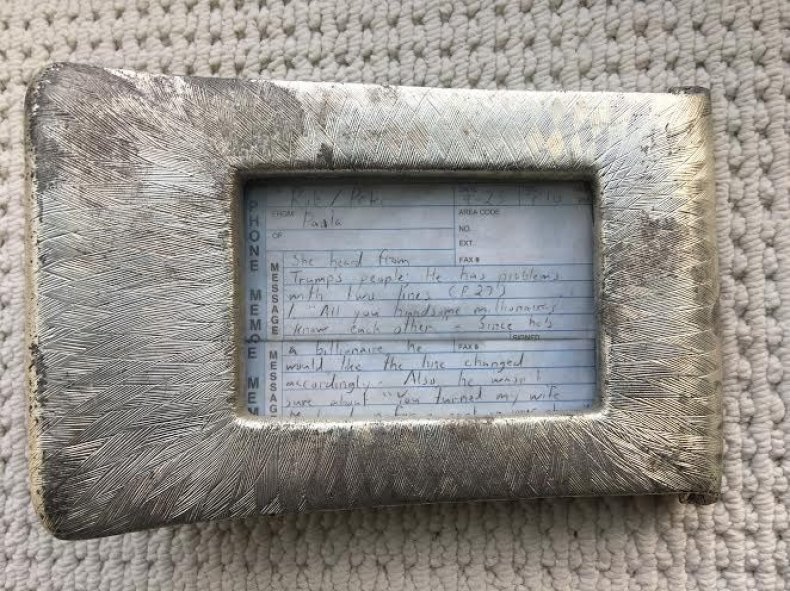 FROM Paula
AREA CODE
OF
NO.
EXT.
PHONE MEMO
MESSAGE
She heard from
FAX #
Trumps people. He has problems
with two lines (P 27)
"All you handsome millionaires
know each other - since he's
SIGNED
E MEM
MESSAG
a billionaire he
FAX #
would like the line changed
accordingly. Also, he wasn't
sure about "You turned my wife